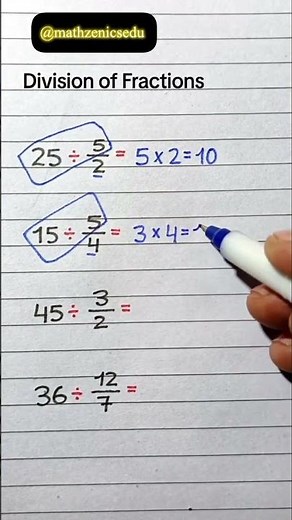 @mathzenicsedu
Division of Fractions
25 ÷ 5/2 = 5 × 2 = 10
15 ÷ 5/4 = 3 × 4 =
45 ÷ 3/2 =
36 ÷ 12/7 =